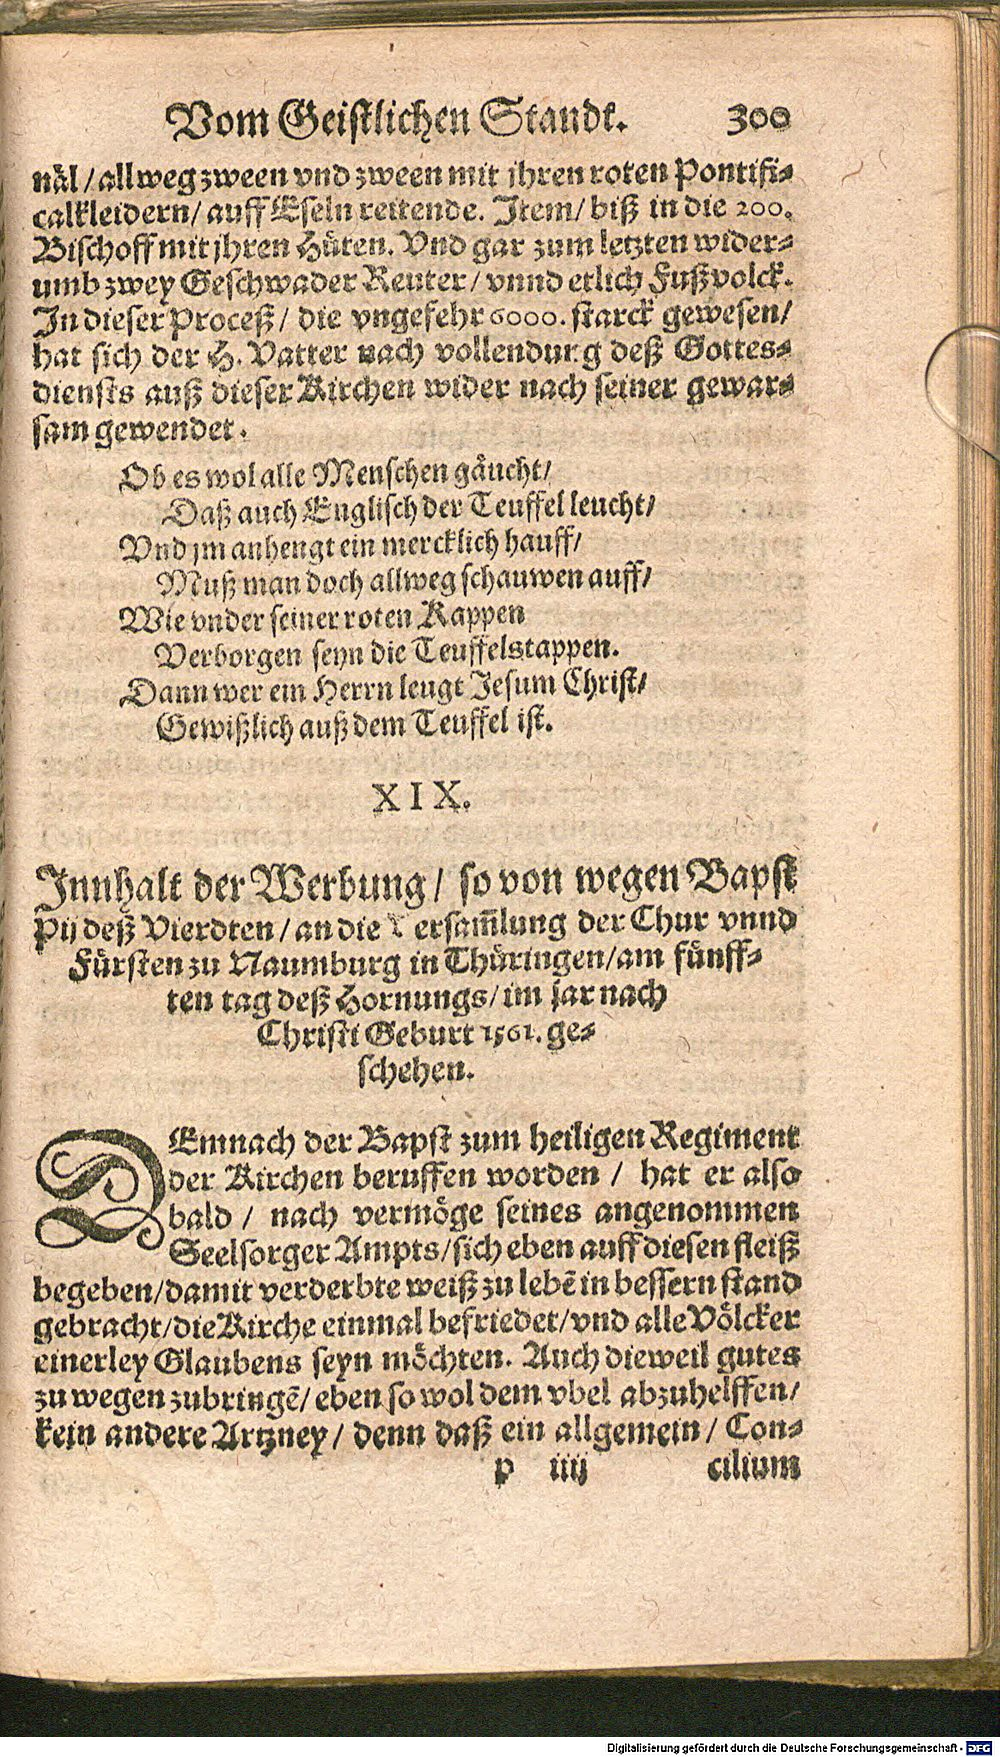 Vom Geistlichen Standt. 300
näl / allweg zween vnd zween mit jhren roten Pontifi-
calkleidern / auff Eseln reitende. Item / biß in die 200.
Bischoff mit jhren Hüten. Vnd gar zum letzten wider-
umb zwey Geschwader Reuter / vnnd etlich Fußvolck.
In dieser Proceß / die vngefehr 6000. starck gewesen /
hat sich der H. Vatter nach vollendung deß Gottes-
diensts auß dieser Kirchen wider nach seiner gewar-
sam gewendet.
Ob es wol alle Menschen gäucht /
Daß auch Englisch der Teuffel leucht /
Vnd jm anhengt ein mercklich hauff /
Muß man doch allweg schauwen auff /
Wie vnder seiner roten Kappen
Verborgen seyn die Teuffelstappen.
Dann wer ein Herrn leugt Jesum Christ /
Gewißlich auß dem Teuffel ist.
XIX.
Innhalt der Werbung / so von wegen Bapst
Pij deß Vierdten / an die Versam̃lung der Chur vnnd
Fürsten zu Naumburg in Thüringen / am fünff-
ten tag deß Hornungs / im jar nach
Christi Geburt 1561. ge-
schehen.
DEmnach der Bapst zum heiligen Regiment
der Kirchen beruffen worden / hat er also
bald / nach vermöge seines angenommen
Seelsorger Ampts / sich eben auff diesen fleiß
begeben / damit verderbte weiß zu lebẽ in bessern stand
gebracht / die Kirche einmal befriedet / vnd alle Völcker
einerley Glaubens seyn möchten. Auch dieweil gutes
zu wegen zubringẽ / eben so wol dem vbel abzuhelffen /
kein andere Artzney / denn daß ein allgemein / Con-
p iiij cilium
Digitalisierung gefördert durch die Deutsche Forschungsgemeinschaft - DFG